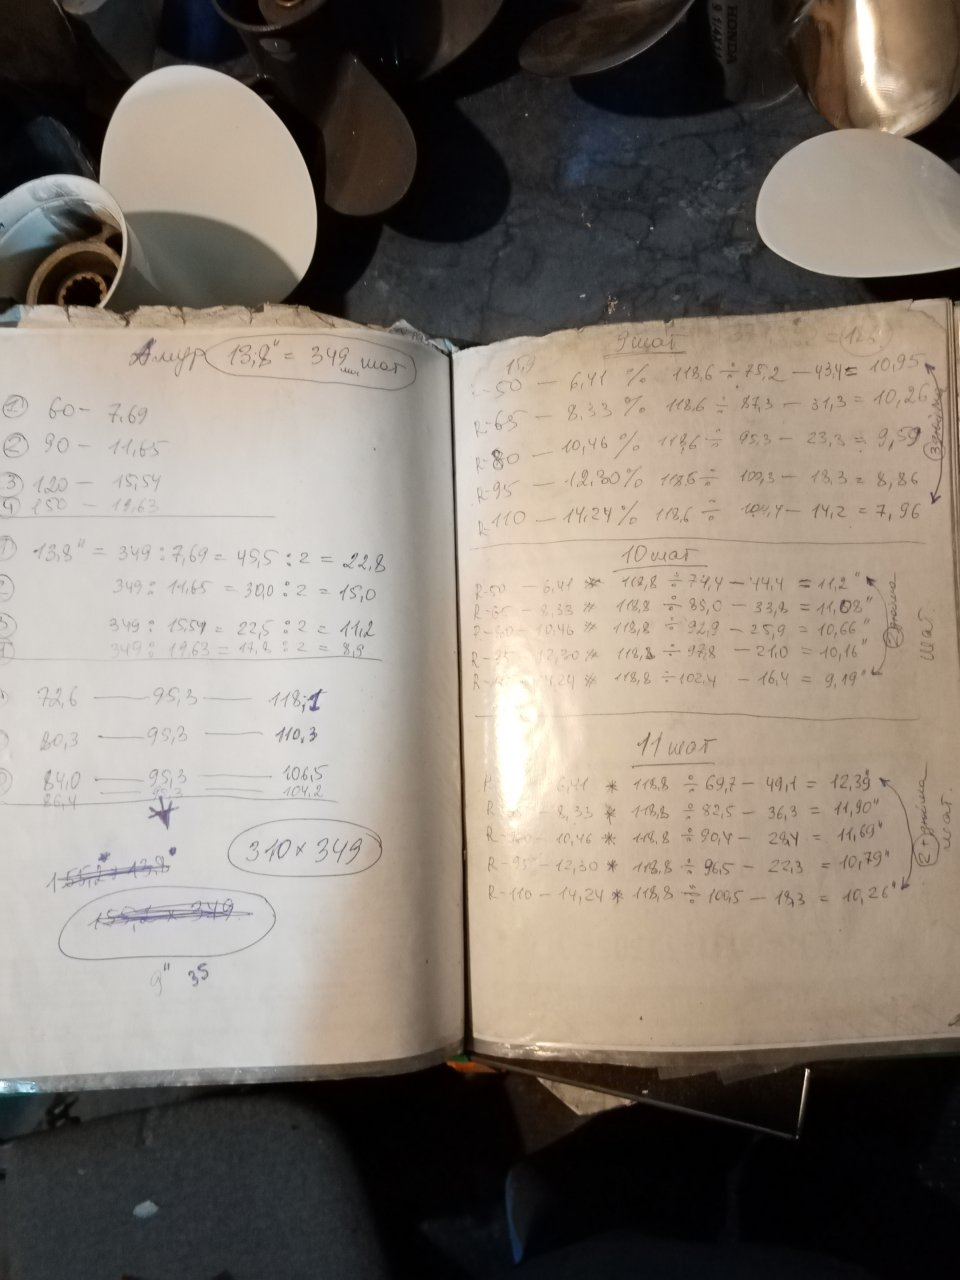 HONDA
Амур 13,8" = 349 мм шаг
1 60 - 7,69
2 90 - 11,65
3 120 - 15,54
4 150 - 19,63
1 13,8" = 349 : 7,69 = 45,5 : 2 = 22,8
349 : 11,65 = 30,0 : 2 = 15,0
349 : 15,54 = 22,5 : 2 = 11,2
349 : 19,63 = 17,8 : 2 = 8,9
72,6 — 95,3 — 118,1
80,3 — 95,3 — 110,3
84,0 — 95,3 — 106,5
86,4 — 95,3 — 104,2
310 x 349
155,2 * 13,8"
155,2 x 349
9" 35
9 шаг
15,9
R-50 — 6,41 % 118,6 ÷ 75,2 — 43,4 = 10,95
R-65 — 8,33 % 118,6 ÷ 87,3 — 31,3 = 10,26
R-80 — 10,46 % 118,6 ÷ 95,3 — 23,3 = 9,59
R-95 — 12,30% 118,6 ÷ 100,3 — 18,3 = 8,86
R-110 — 14,24% 118,6 ÷ 104,4 — 14,2 = 7,96
10 шаг
R-50 - 6,41 * 118,8 ÷ 74,4 — 44,4 = 11,2"
R-65 - 8,33 * 118,8 ÷ 85,0 — 33,8 = 11,08"
R-80 - 10,46 * 118,8 ÷ 92,9 — 25,9 = 10,66"
R-95 - 12,30 * 118,8 ÷ 97,8 — 21,0 = 10,16"
14,24 * 118,8 ÷ 102,4 - 16,4 = 9,19"
шаг
11 шаг
6,41 * 118,8 ÷ 69,7 — 49,1 = 12,39"
8,33 * 118,8 ÷ 82,5 — 36,3 = 11,90"
10,46 * 118,8 ÷ 90,4 — 28,4 = 11,69"
R-95 - 12,30 * 118,8 ÷ 96,5 — 22,3 = 10,79"
R-110 — 14,24 * 118,8 ÷ 100,5 — 18,3 = 10,26"
шаг.